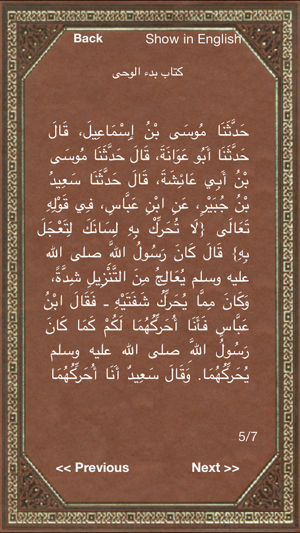 Back
Show in English
كتاب بدء الوحى
حَدَّثَنَا مُوسَى بْنُ إِسْمَاعِيلَ، قَالَ
حَدَّثَنَا أَبُو عَوَانَةَ، قَالَ حَدَّثَنَا مُوسَى
بْنُ أَبِي عَائِشَةَ، قَالَ حَدَّثَنَا سَعِيدُ
بْنُ جُبَيْرٍ، عَنِ ابْنِ عَبَّاسٍ، فِي قَوْلِهِ
تَعَالَى {لاَ تُحَرِّكْ بِهِ لِسَانَكَ لِتَعْجَلَ
بِهِ} قَالَ كَانَ رَسُولُ اللَّهِ صلى الله
عليه وسلم يُعَالِجُ مِنَ التَّنْزِيلِ شِدَّةً،
وَكَانَ مِمَّا يُحَرِّكُ شَفَتَيْهِ ـ فَقَالَ ابْنُ
عَبَّاسٍ فَأَنَا أُحَرِّكُهُمَا لَكُمْ كَمَا كَانَ
رَسُولُ اللَّهِ صلى الله عليه وسلم
يُحَرِّكُهُمَا. وَقَالَ سَعِيدٌ أَنَا أُحَرِّكُهُمَا
5/7
<< Previous
Next >>